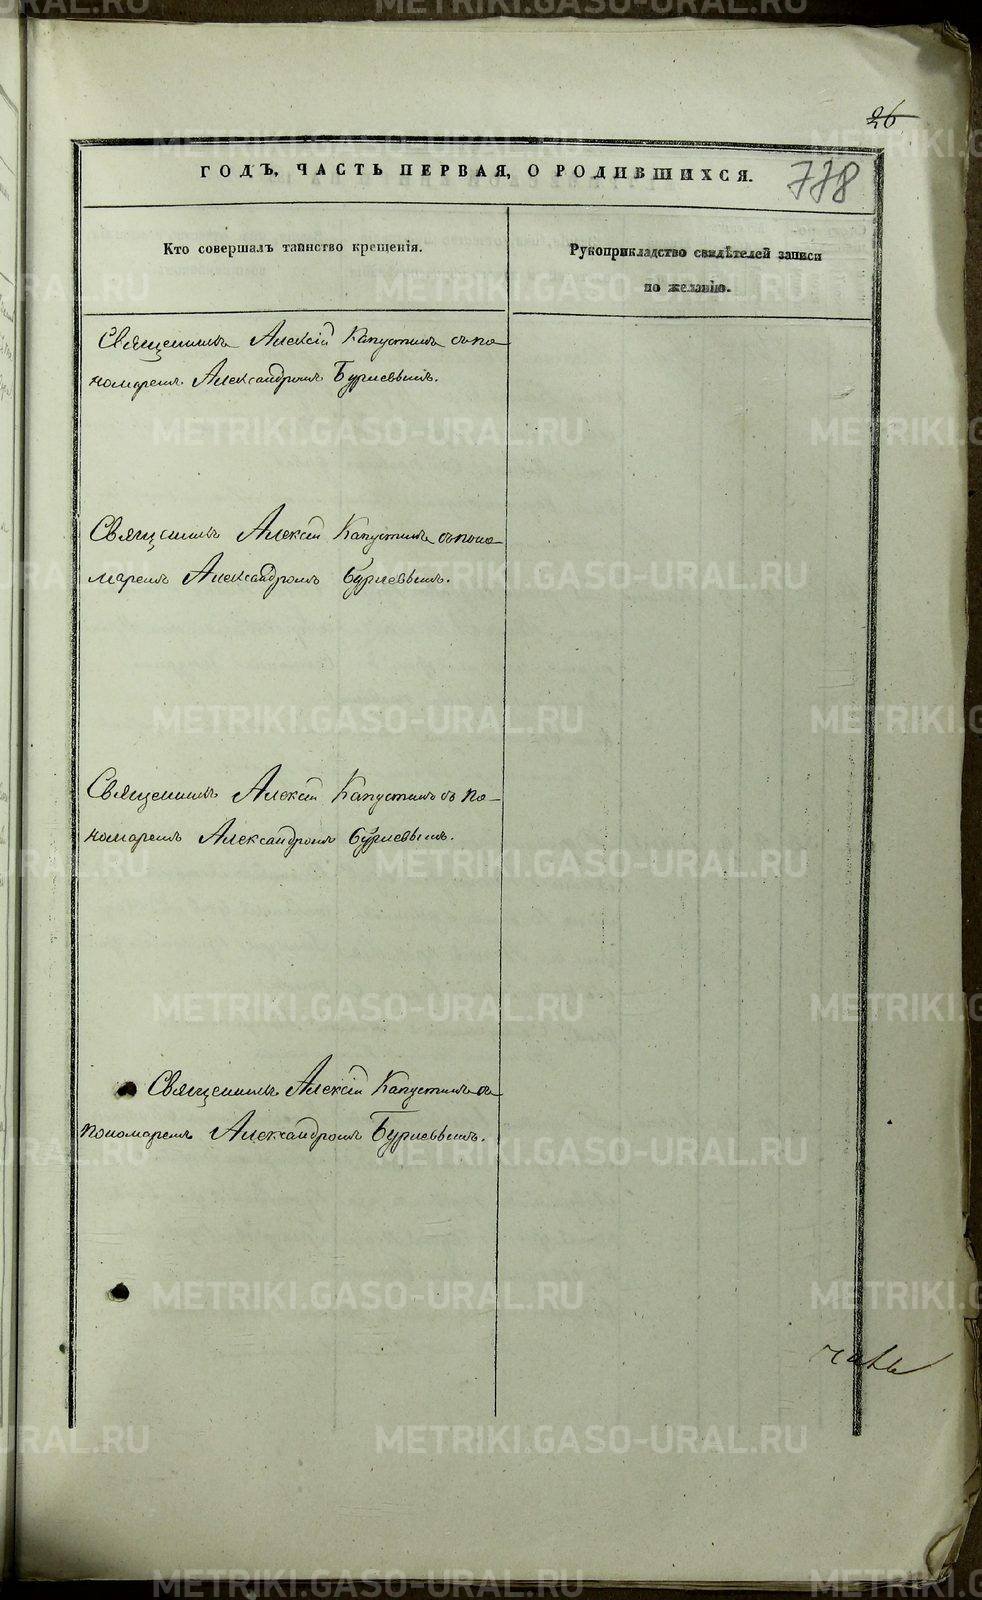 26
778
ГОДЪ, ЧАСТЬ ПЕРВАЯ, О РОДИВШИХСЯ.
Кто совершалъ таинство крещенія.
Рукоприкладство свидѣтелей записи
по желанію.
Священникъ Алексій Капустинъ съ по-
номаремъ Александромъ Бурневымъ.
Священникъ Алексій Капустинъ съ поно-
маремъ Александромъ Бурневымъ.
Священникъ Алексій Капустинъ съ по-
номаремъ Александромъ Бурневымъ.
Священникъ Алексій Капустинъ съ
пономаремъ Александромъ Бурневымъ.
METRIKI.GASO-URAL.RU